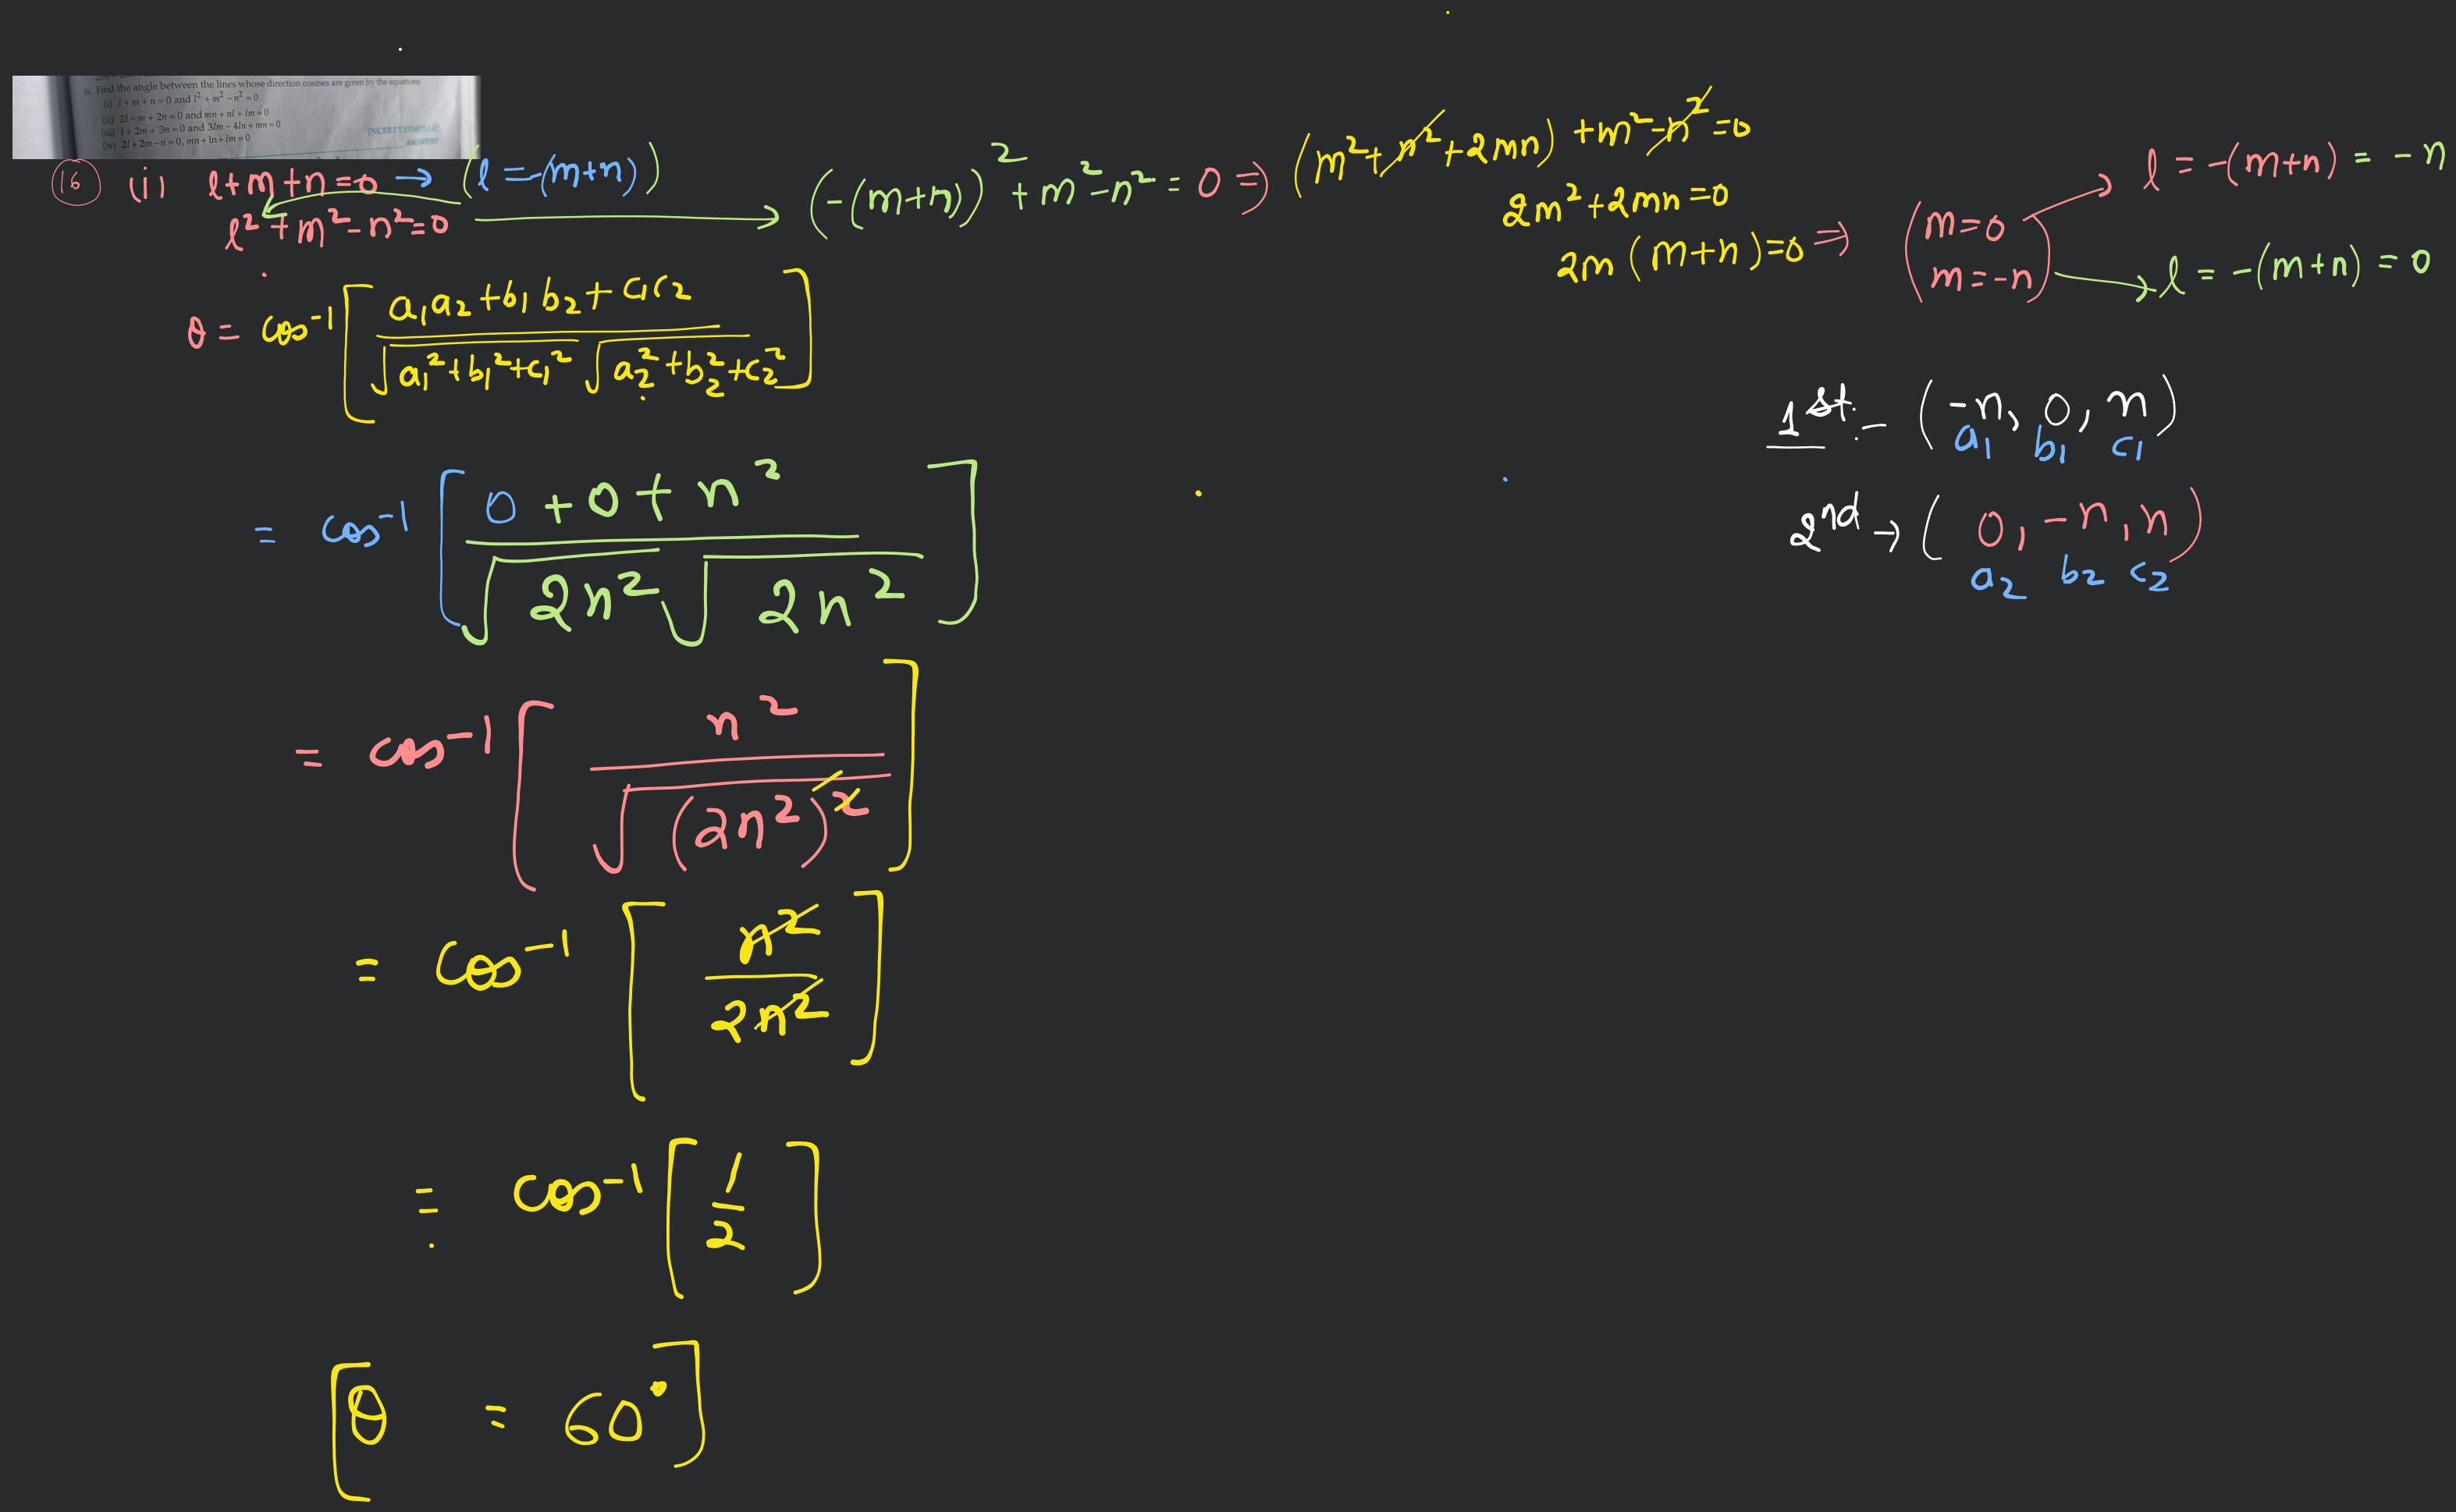 16. Find the angle between the lines whose direction cosines are given by the equations
(i) l + m + n = 0 and l² + m² − n² = 0
(ii) 2l − m + 2n = 0 and mn + nl + lm = 0
(iii) l + 2m + 3n = 0 and 3lm − 4ln + mn = 0
(iv) 2l + 2m − n = 0, mn + ln + lm = 0
[NCERT EXEMPLAR]
ANSWERS
(16) (i) l+m+n=0 → (l = -(m+n))
l²+m²-n²=0
(-(m+n))² + m²-n² = 0 ⇒ (m²+n²+2mn) + m²-n²=0
2m²+2mn=0
2m(m+n)=0 ⇒ (m=0
m=-n)
l = -(m+n) = -n
l = -(m+n) = 0
θ = cos⁻¹[ a₁a₂+b₁b₂+c₁c₂ / √(a₁²+b₁²+c₁²) √(a₂²+b₂²+c₂²) ]
1st:- (-n, 0, n)
a₁ b₁ c₁
2nd → (0, -n, n)
a₂ b₂ c₂
= cos⁻¹[ 0+0+n² / √2n² √2n² ]
= cos⁻¹[ n² / √(2n²)² ]
= cos⁻¹[ n² / 2n² ]
= cos⁻¹[ 1/2 ]
[θ = 60°]